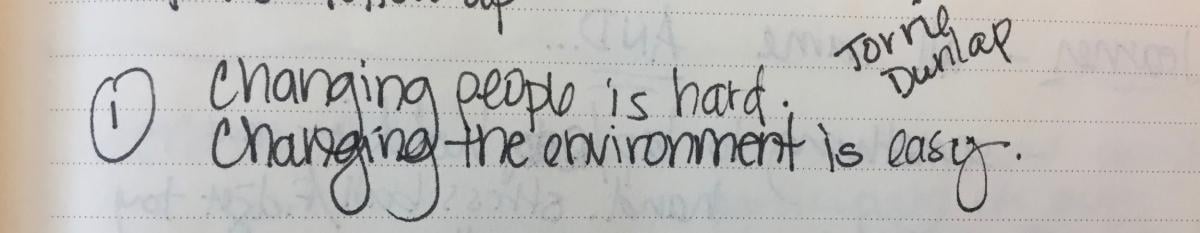 ① Changing people is hard.
Changing the environment is easy.
Torrie
Dunlap